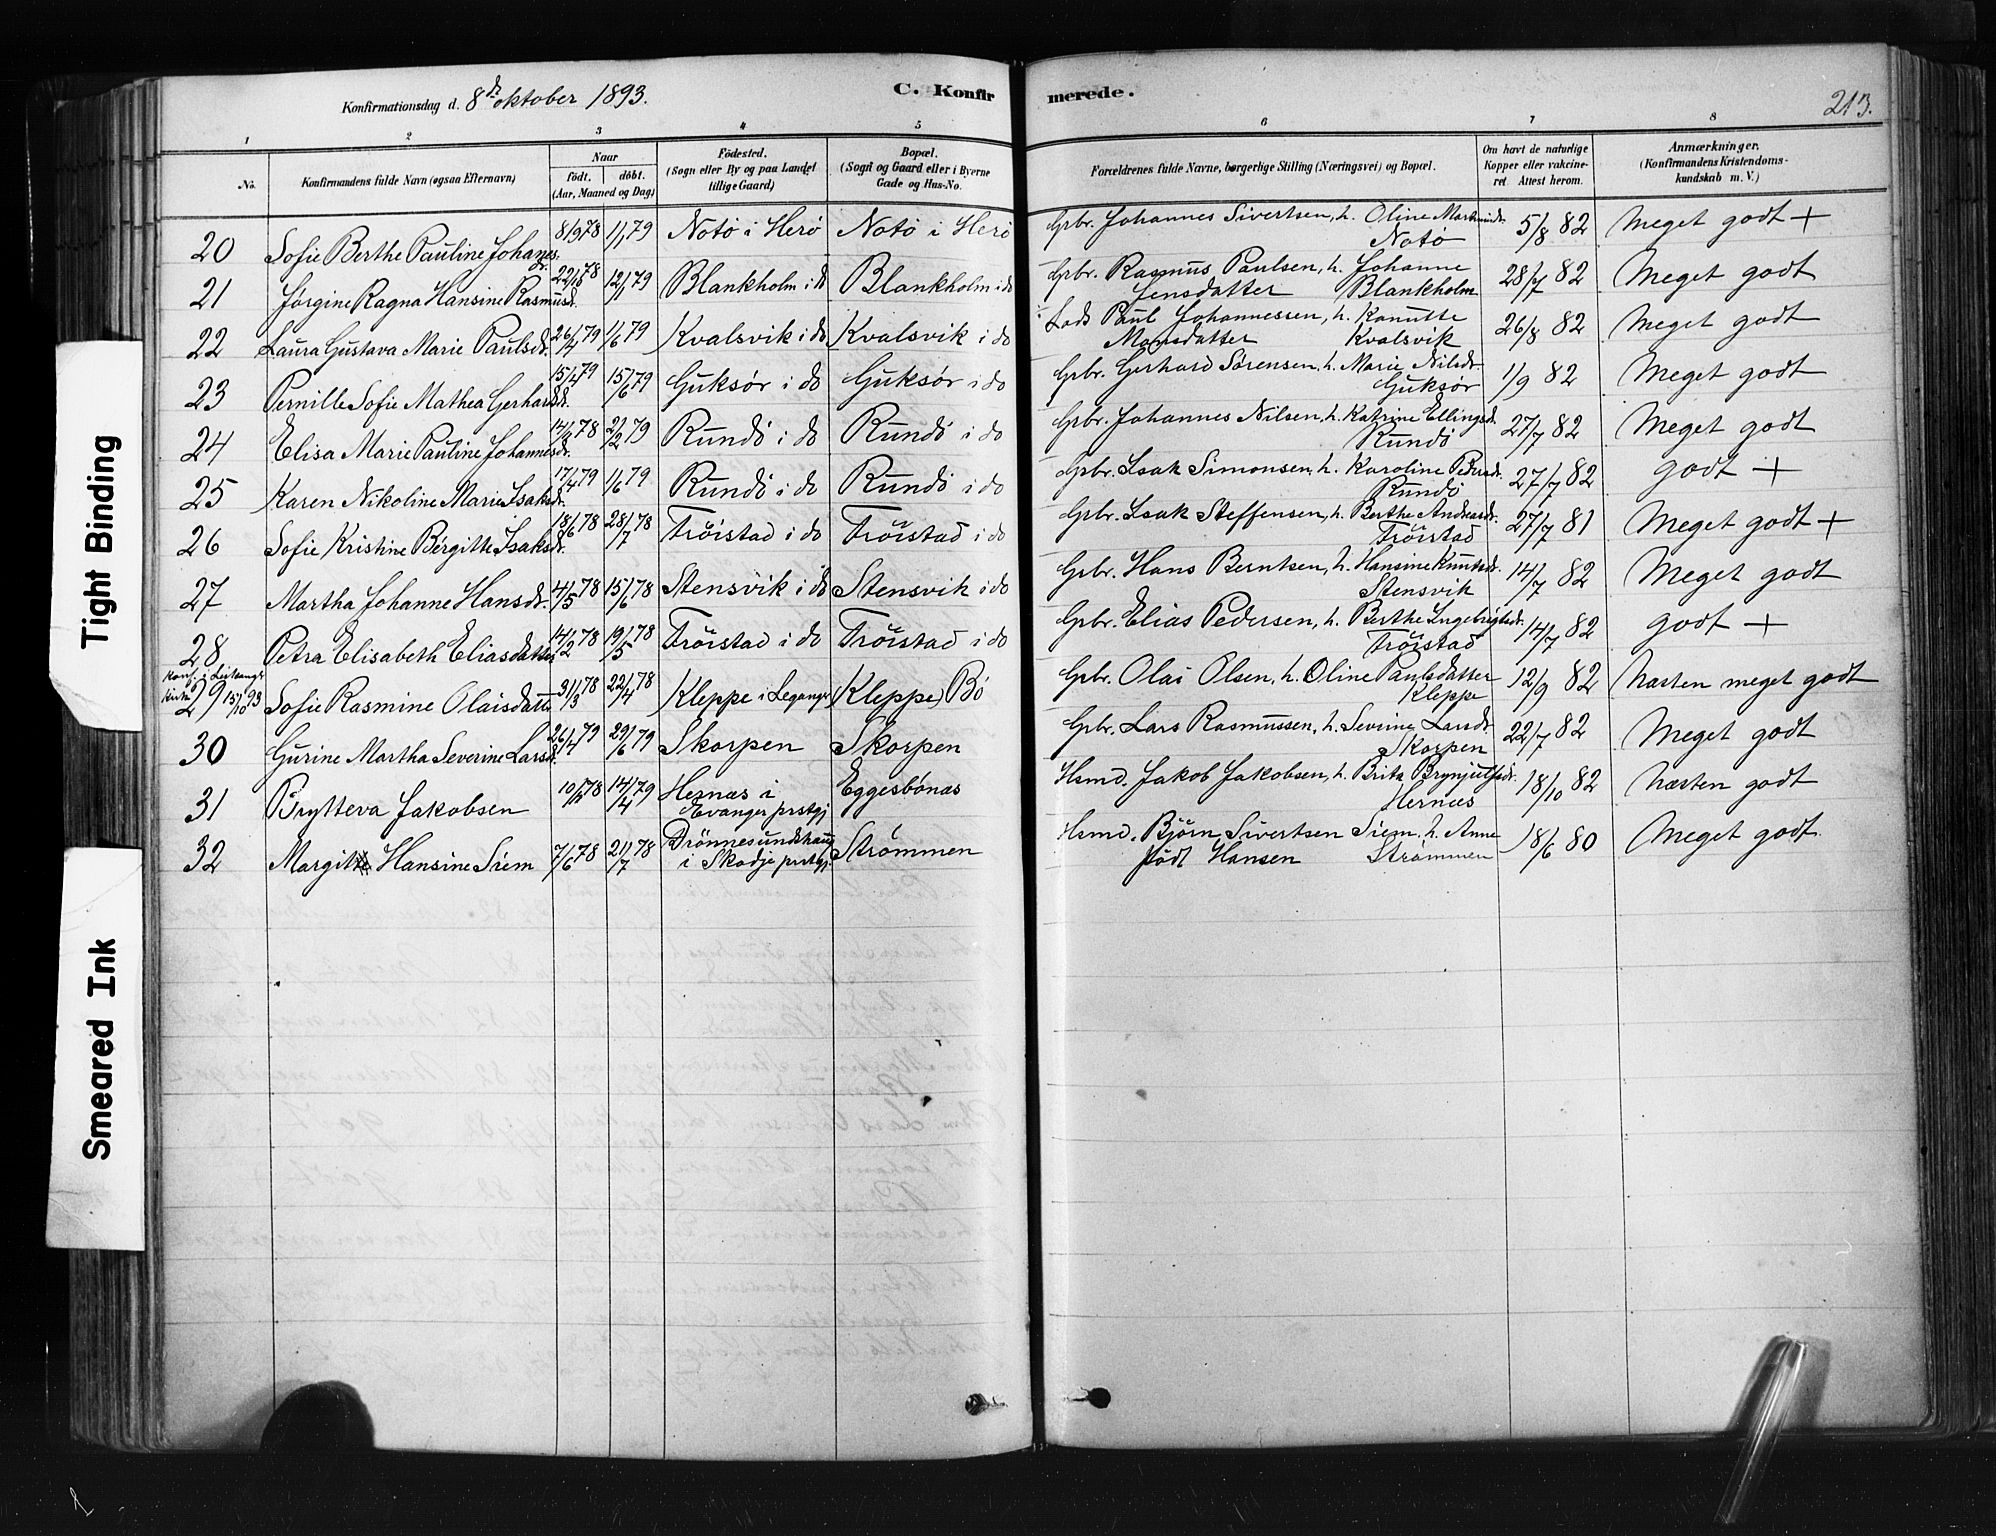 Konfirmationsdag d. 8de oktober 1893.
C. Konfirmerede.
213.
1 2 3 4 5 6 7 8
No.
Konfirmandens fulde Navn (ogsaa Efternavn)
Naar
födt. döbt.
(Aar, Maaned og Dag)
Födested.
(Sogn eller By og paa Landet
tillige Gaard)
Bopæl.
(Sogn og Gaard eller i Byerne
Gade og Hus-No.
Forældrenes fulde Navne, borgerlige Stilling (Næringsvei) og Bopæl.
Om havt de naturlige
Kopper eller vakcine-
ret Attest herom.
Anmærkninger.
(Konfirmandens Kristendoms-
kundskab m. V.)
20 Sofie Berthe Pauline Johannesdr. 8/9 78 1/1 79 Notö i Herö Notö i Herö Grbr. Johannes Sivertsen, h. Oline Notö 5/8 82 Meget godt +
21 Jörgine Ragna Hansine Rasmusd. 12/1 79 Blankholm i do Blankholm i do Grbr. Rasmus Paulsen, h. Johanne Jensdatter Blankholm 28/7 82 Meget godt
22 Laura Gustava Marie Paulsd. 26/4 79 1/6 79 Kvalsvik i do Kvalsvik i do Lods Paul Johannessen, h. Kanutte Monsdatter Kvalsvik 26/8 82 Meget godt
23 Pernille Sofie Mathea Gerhardsd. 15/4 79 15/6 79 Guksör i do Guksör i do Grbr. Gerhard Sørensen, h. Marie Nilsdr. Guksör 1/9 82 Meget godt
24 Elisa Marie Pauline Johannesdr. 2/2 79 Rundö i do Rundö i do Grbr. Johannes Nilsen, h. Katrine Ellingsd. Rundö 27/7 82 Meget godt
25 Karen Nikoline Marie Isaksd. 17/4 79 1/6 79 Rundö i do Rundö i do Grbr. Isak Simonsen, h. Karoline Pedersd. Rundö 27/7 82 godt +
26 Sofie Kristine Bergitte Isaksd. 18/6 78 28/7 78 Tröistad i do Tröistad i do Grbr. Isak Steffensen, h. Berthe Andreasdr. Tröistad 27/7 81 Meget godt +
27 Martha Johanne Hansdr. 4/5 78 15/6 78 Stensvik i do Stensvik i do Grbr. Hans Berntsen, h. Hansine Knutsdr. Stensvik 14/7 82 Meget godt
28 Petra Elisabeth Eliasdatter 14/2 78 19/5 78 Tröistad i do Tröistad i do Grbr. Elias Pedersen, h. Berthe Ingebrigtsdr. Tröistad 14/7 82 godt +
Konf. i Leikanger
Kirke 15/10 93
29 Sofie Rasmine Olaisdatter 31/3 78 22/4 78 Kleppe i Leganger (Kleppe) Bö Grbr. Olai Olsen, h. Oline Paulsdatter Kleppe 12/9 82 næsten meget godt
30 Gurine Martha Severine Larsd. 26/4 79 29/6 79 Skorpen Skorpen Grbr. Lars Rasmussen, h. Severine Larsdr. Skorpen 22/7 82 Meget godt
31 Brytteva Jakobsen 10/12 78 14/4 79 Hernæs i Evanger prstgj Eggesbönæs Hsmd. Jakob Jakobsen, h. Brita Brynjulfsdr. Hernæs 18/10 82 Næsten godt
32 Margit Hansine Siem 7/6 78 21/7 78 Drönnesundshaug i Skodje prstgj. Strömmen Hsmd. Björn Sivertsen Siem, h. Anne födt Hansen Strömmen 18/6 80 Meget godt.
Tight Binding
Smeared Ink